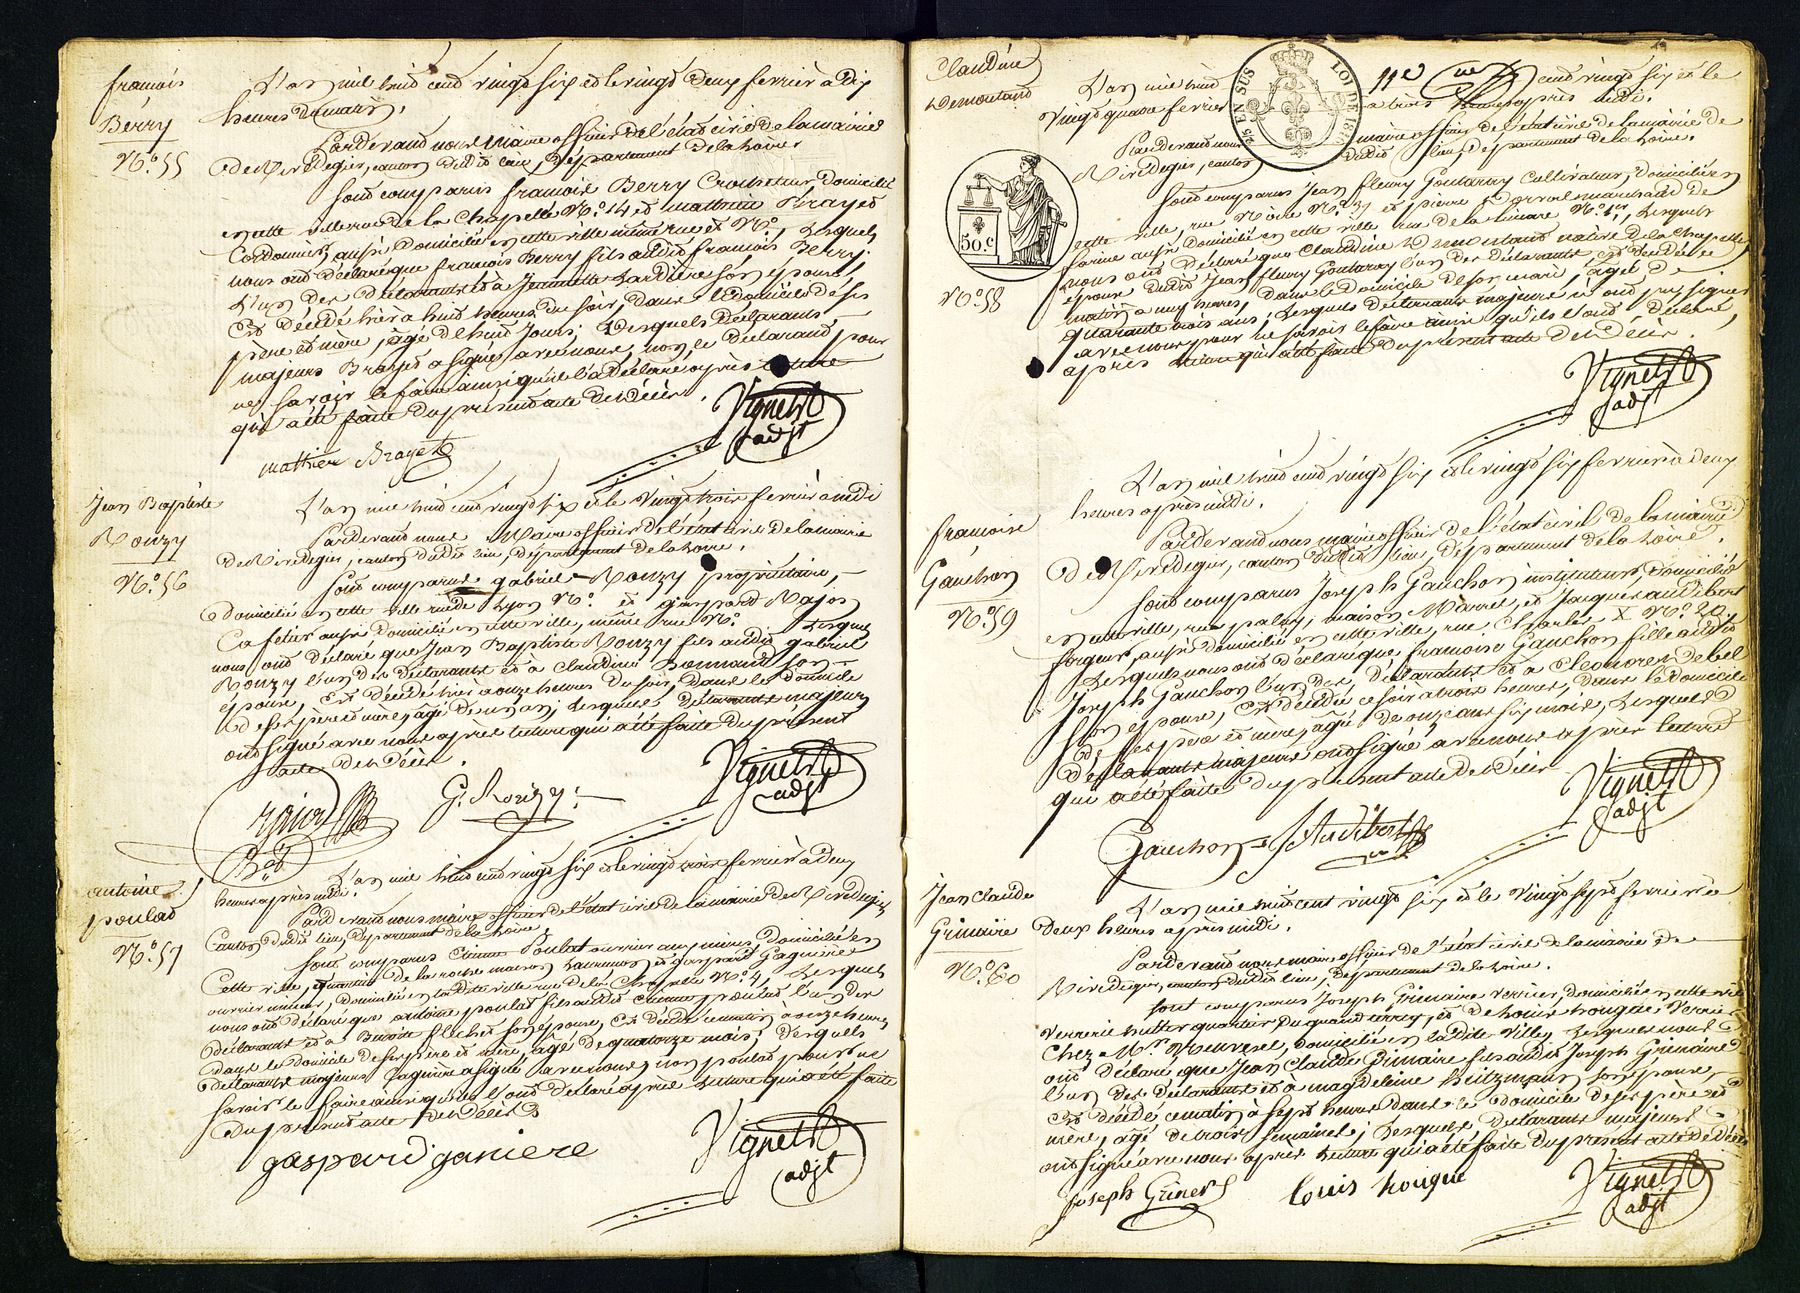 françois
Berry
N.o 55
L'an mil huit cent vingt six et le vingt deux fevrier à dix
heures du matin,
Pardevant nous Maire officier de l'état civil de la mairie
de Rivedegier, canton dudit lieu, Département de la Loire
Sont comparus françois Berry Crocheteur, domicilié
en cette ville rue de la Chapelle N.o 14 et Matthieu Brayet
Cordonnier, aussi domicilié en cette ville même rue et N.o, Lesquels
nous ont déclaré que françois Berry fils audit françois Berry,
L'un des déclarants et à Jeannette Lardière son épouse,
Est décédé hier à huit heures du soir, dans le domicile de ses
père et mère, âgé de huit Jours; Lesquels déclarants
majeurs Brayet a signé avec nous, non le déclarant, pour
ne savoir le faire ainsi qu'il l'a déclaré, après lecture
qui a été faite du présent acte de décès.
Vignet
adjt
mathieu Brayet
Jean Baptiste
Rouzy
N.o 56
L'an mil huit cent vingt six et le vingt trois fevrier à midi
Pardevant nous Maire officier de l'état civil de la mairie
de Rivedegier, canton dudit lieu, département de la Loire.
Sont comparus gabriel Rouzy propriétaire,
domicilié en cette ville rue de Lyon N.o et gaspard Rajon
Cafetier aussi domicilié en cette ville, même rue N.o Lesquels
nous ont déclaré que Jean Baptiste Rouzy fils audit gabriel
Rouzy l'un des déclarants et à Claudine Bonnand son
épouse, Est décédé hier à onze heures du soir, dans le domicile
de ses père et mère, âgé de un an; Lesquels déclarants majeurs
ont signé avec nous après lecture qui a été faite du présent
acte de décès.
Vignet
adjt
rajon
G. Rouzy
antoine
poulat
N.o 57
L'an mil huit cent vingt six et le vingt trois fevrier à deux
heures après midi.
Pardevant nous maire officier de l'état civil de la mairie de Rivedegier
Canton dudit lieu, Département de la Loire,
Sont comparus Etienne Poulat ouvrier aux mines, Domicilié en
Cette ville, quartier de la roche maison et gaspard Gagniere
ouvrier mineur, domicilié en ladite ville rue de la Chapelle N.o 4, Lesquels
nous ont déclaré que antoine poulat fils audit Etienne poulat l'un des
déclarants et à Benoite flechet son épouse, Est décédé ce matin à onze heures
dans le domicile de ses père et mère, âgé de quatorze mois; Lesquels
déclarants majeurs Gagnière a signé avec nous, non poulat pour ne
savoir le faire ainsi qu'ils l'ont déclaré après lecture qui a été faite
du présent acte de décès.
Vignet
adjt
gaspard ganiere
Claudine
Demoutand
N.o 58
L'an mil huit cent vingt six et le
Vingt quatre fevrier à trois heures après midi.
EN SUS
LOI DE 18
50.c
Pardevant nous maire officier de l'état civil de la mairie de
Rivedegier, canton dudit lieu, département de la Loire.
Sont comparus Jean fleury Goutaray Cultivateur, domicilié en
cette ville, rue Noire N.o 31 et pierre marchand de
farine aussi domicilié en cette ville rue de la N.o Lesquels
nous ont déclaré que Claudine Demoutand native de la Chapelle
épouse dudit Jean fleury Goutaray l'un des déclarants, est décédée ce
matin à neuf heures, dans le domicile de son mari, âgée de
quarante trois ans; Lesquels déclarants majeurs n'ont pu signer
avec nous pour ne savoir le faire ainsi qu'ils l'ont déclaré,
après lecture qui a été faite du présent acte de décès.
Vignet
adjt
françoise
Gauchon
N.o 59
L'an mil huit cent vingt six et le vingt six fevrier à deux
heures après midi.
Pardevant nous maire officier de l'état civil de la mairie
de Rivedegier, canton dudit lieu, département de la Loire.
Sont comparus Joseph Gauchon instituteur, domicilié
en cette ville, rue paluy, maison Marrel, et Jacques audibert
forgeur, aussi domicilié en cette ville, rue Charles X N.o 20,
Lesquels nous ont déclaré que françoise Gauchon fille audit
Joseph Gauchon l'un des déclarants et à Eleonore Debel
son épouse, Est décédée ce soir à trois heures, dans le domicile
de ses père et mère, âgée de onze ans six mois, Lesquels
déclarants majeurs ont signé avec nous après lecture
qui a été faite du présent acte de décès
Vignet
adjt
Gauchon
J Audibert
Jean Claude
Grimaire
N.o 60
L'an mil huit cent vingt six et le vingt sept fevrier à
deux heures après midi.
Pardevant nous maire officier de l'état civil de la mairie de
Rivedegier, canton dudit lieu, département de la Loire.
Sont comparus Joseph Grimaire verrier, domicilié en cette ville
verrerie hutter quartier du grand et de Louis hougue, Verrier
Chez M.r Neuvesel, domicilié en ladite Ville, Lesquels nous
ont déclaré que Jean Claude Grimaire fils audit Joseph Grimaire
l'un des déclarants et à magdeleine heitzmann son épouse,
Est décédé ce matin à sept heures dans le domicile de ses père et
mère, âgé de trois semaines; Lesquels déclarants majeurs
ont signé avec nous après lecture qui a été faite du présent acte de Décès
Vignet
adjt
Joseph Grimer
louis hougue